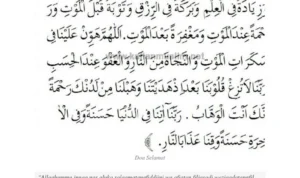 زِيَادَةً فِى الْعِلْمِ وَبَرَكَةً فِى الرِّزْقِ وَتَوْبَةً قَبْلَ الْمَوْتِ وَرَ
حْمَةً عِنْدَ الْمَوْتِ وَمَغْفِرَةً بَعْدَ الْمَوْتِ. اَللّٰهُمَّ هَوِّنْ عَلَيْنَا فِى
سَكَرَاتِ الْمَوْتِ وَالنَّجَاةَ مِنَ النَّارِ وَالْعَفْوَ عِنْدَ الْحِسَبِ
رَبَّنَا لَاتُزِغْ قُلُوْبَنَا بَعْدَ اِذْهَدَيْتَنَا وَهَبْلَنَا مِنْ لَدُنْكَ رَحْمَةً
نَّكَ اَنْتَ الْوَهَّابُ . رَبَّنَا اٰتِنَا فِى الدُّنْيَا حَسَنَةً وَفِى الْاَ
خِرَةِ حَسَنَةً وَقِنَا عَذَابَ النَّارِ.
Doa Selamat